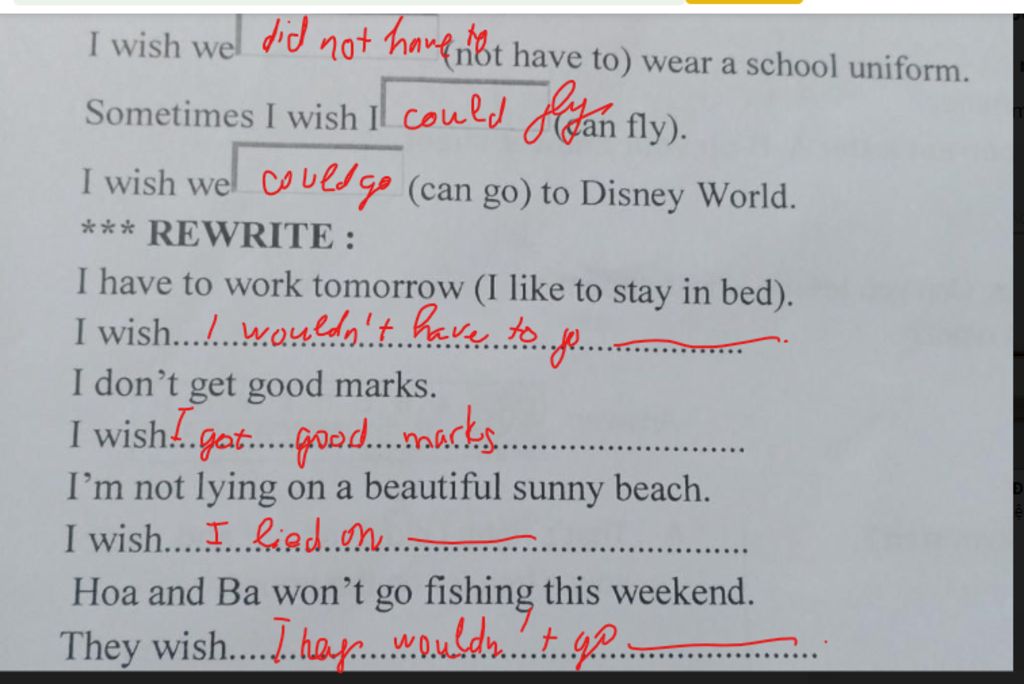 I wish we did not have to (not have to) wear a school uniform.
Sometimes I wish I could fly (can fly).
I wish we could go (can go) to Disney World.
*** REWRITE :
I have to work tomorrow (I like to stay in bed).
I wish...I wouldn't have to go............
I don't get good marks.
I wish...I got good marks............
I'm not lying on a beautiful sunny beach.
I wish.....I lied on............
Hoa and Ba won't go fishing this weekend.
They wish.....They wouldn't go............